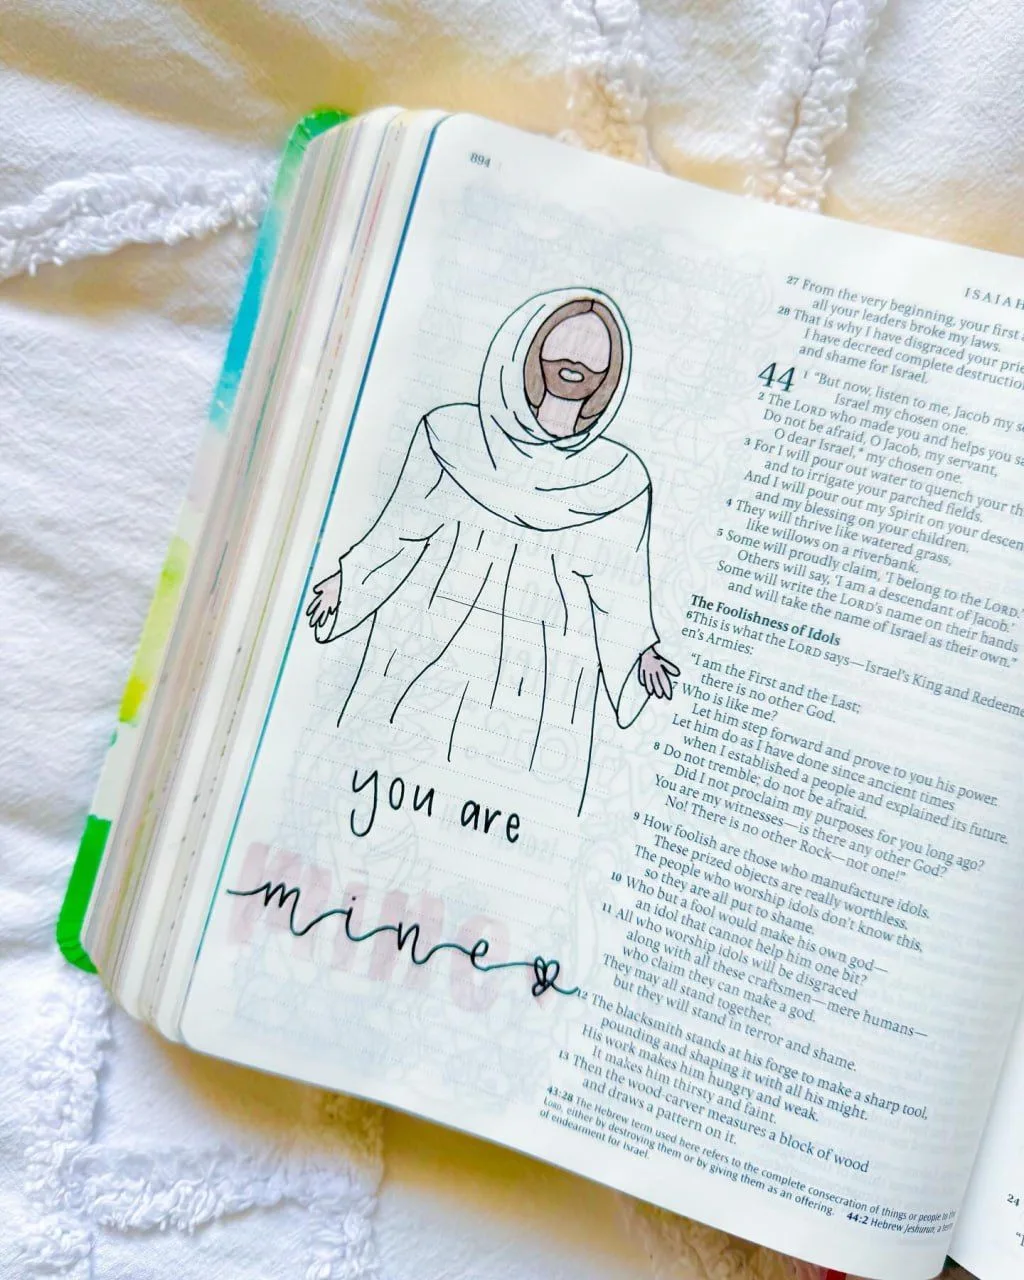 894
ISAIAH
you are
mine
27 From the very beginning, your first
all your leaders broke my laws.
28 That is why I have disgraced your
I have decreed complete
and shame for Israel.
44
1 “But now, listen to me, Jacob my
Israel my chosen one.
2 The LORD who made you and helps you
Do not be afraid, O Jacob, my servant,
O dear Israel,* my chosen one.
3 For I will pour out water to quench your
and to irrigate your parched fields.
And I will pour out my Spirit on your
and my blessing on your children.
4 They will thrive like watered grass,
like willows on a riverbank.
5 Some will proudly claim, ‘I belong to the LORD.’
Others will say, ‘I am a descendant of Jacob.’
Some will write the LORD’s name on their hands
and will take the name of Israel as their own.”
The Foolishness of Idols
6 This is what the LORD says—Israel’s King and
en’s Armies:
“I am the First and the Last;
there is no other God.
7 Who is like me?
Let him step forward and prove to you his power.
Let him do as I have done since ancient times
when I established a people and explained its future.
8 Do not tremble; do not be afraid.
Did I not proclaim my purposes for you long ago?
You are my witnesses—is there any other God?
No! There is no other Rock—not one!”
9 How foolish are those who manufacture idols.
These prized objects are really worthless.
The people who worship idols don’t know this,
so they are all put to shame.
10 Who but a fool would make his own god—
an idol that cannot help him one bit?
11 All who worship idols will be disgraced
along with all these craftsmen—mere humans—
who claim they can make a god.
They may all stand together,
but they will stand in terror and shame.
12 The blacksmith stands at his forge to make a sharp tool,
pounding and shaping it with all his might.
His work makes him hungry and weak.
It makes him thirsty and faint.
13 Then the wood-carver measures a block of wood
and draws a pattern on it.
43:28 The Hebrew term used here refers to the complete consecration of things or people to the
LORD, either by destroying them or by giving them as an offering. 44:2 Hebrew Jeshurun, a
of endearment for Israel.
24